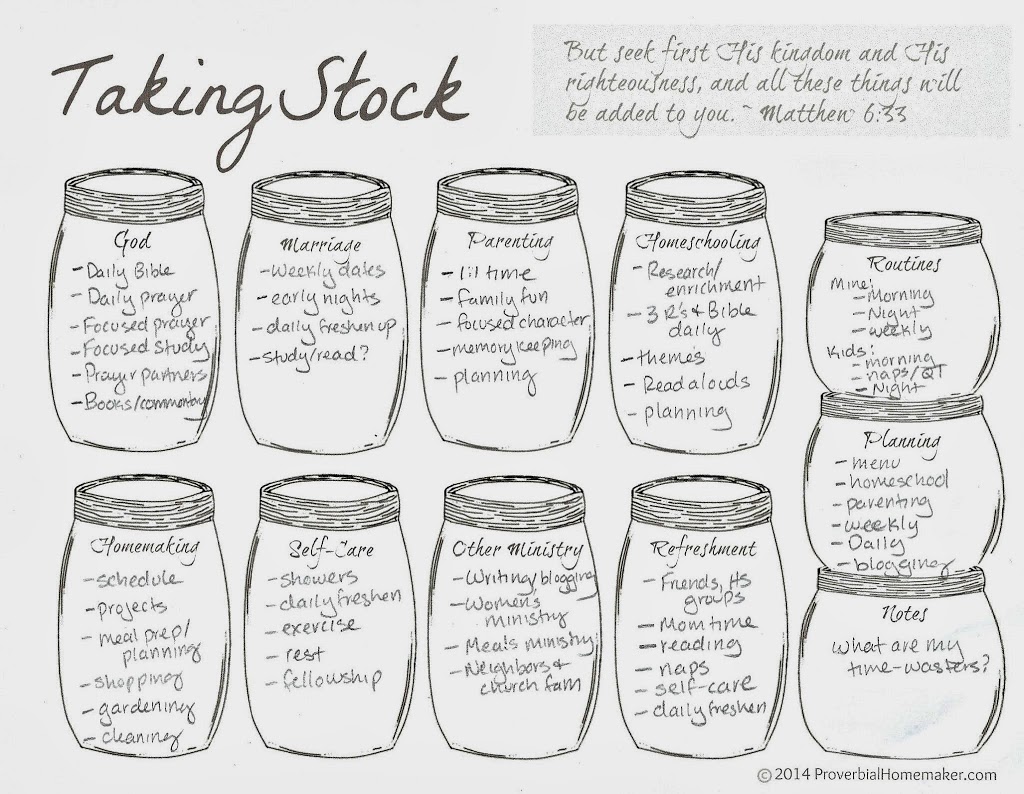 Taking Stock
But seek first His kingdom and His
righteousness, and all these things will
be added to you. ~ Matthew 6:33
God
- Daily Bible
- Daily prayer
- Focused prayer
- Focused Study
- Prayer partners
- Books/commentary
Marriage
- Weekly dates
- early nights
- daily freshen up
- study/read?
Parenting
- 1:1 time
- family fun
- focused character
- memory keeping
- planning
Homeschooling
- Research/
enrichment
- 3 R's & Bible
daily
- themes
- Read alouds
- planning
Routines
Mine:
- Morning
- Night
- weekly
Kids:
- morning
- naps/QT
- Night
Planning
- menu
- homeschool
- parenting
- weekly
- Daily
- blogging
Homemaking
- schedule
- projects
- meal prep/
planning
- shopping
- gardening
- cleaning
Self-Care
- showers
- daily freshen
- exercise
- rest
- fellowship
Other Ministry
- Writing/blogging
- Women's
ministry
- Meals ministry
- Neighbors &
church fam
Refreshment
- Friends, HS
groups
- Mom time
- reading
- naps
- self-care
- daily freshen
Notes
what are my
time-wasters?
© 2014 ProverbialHomemaker.com